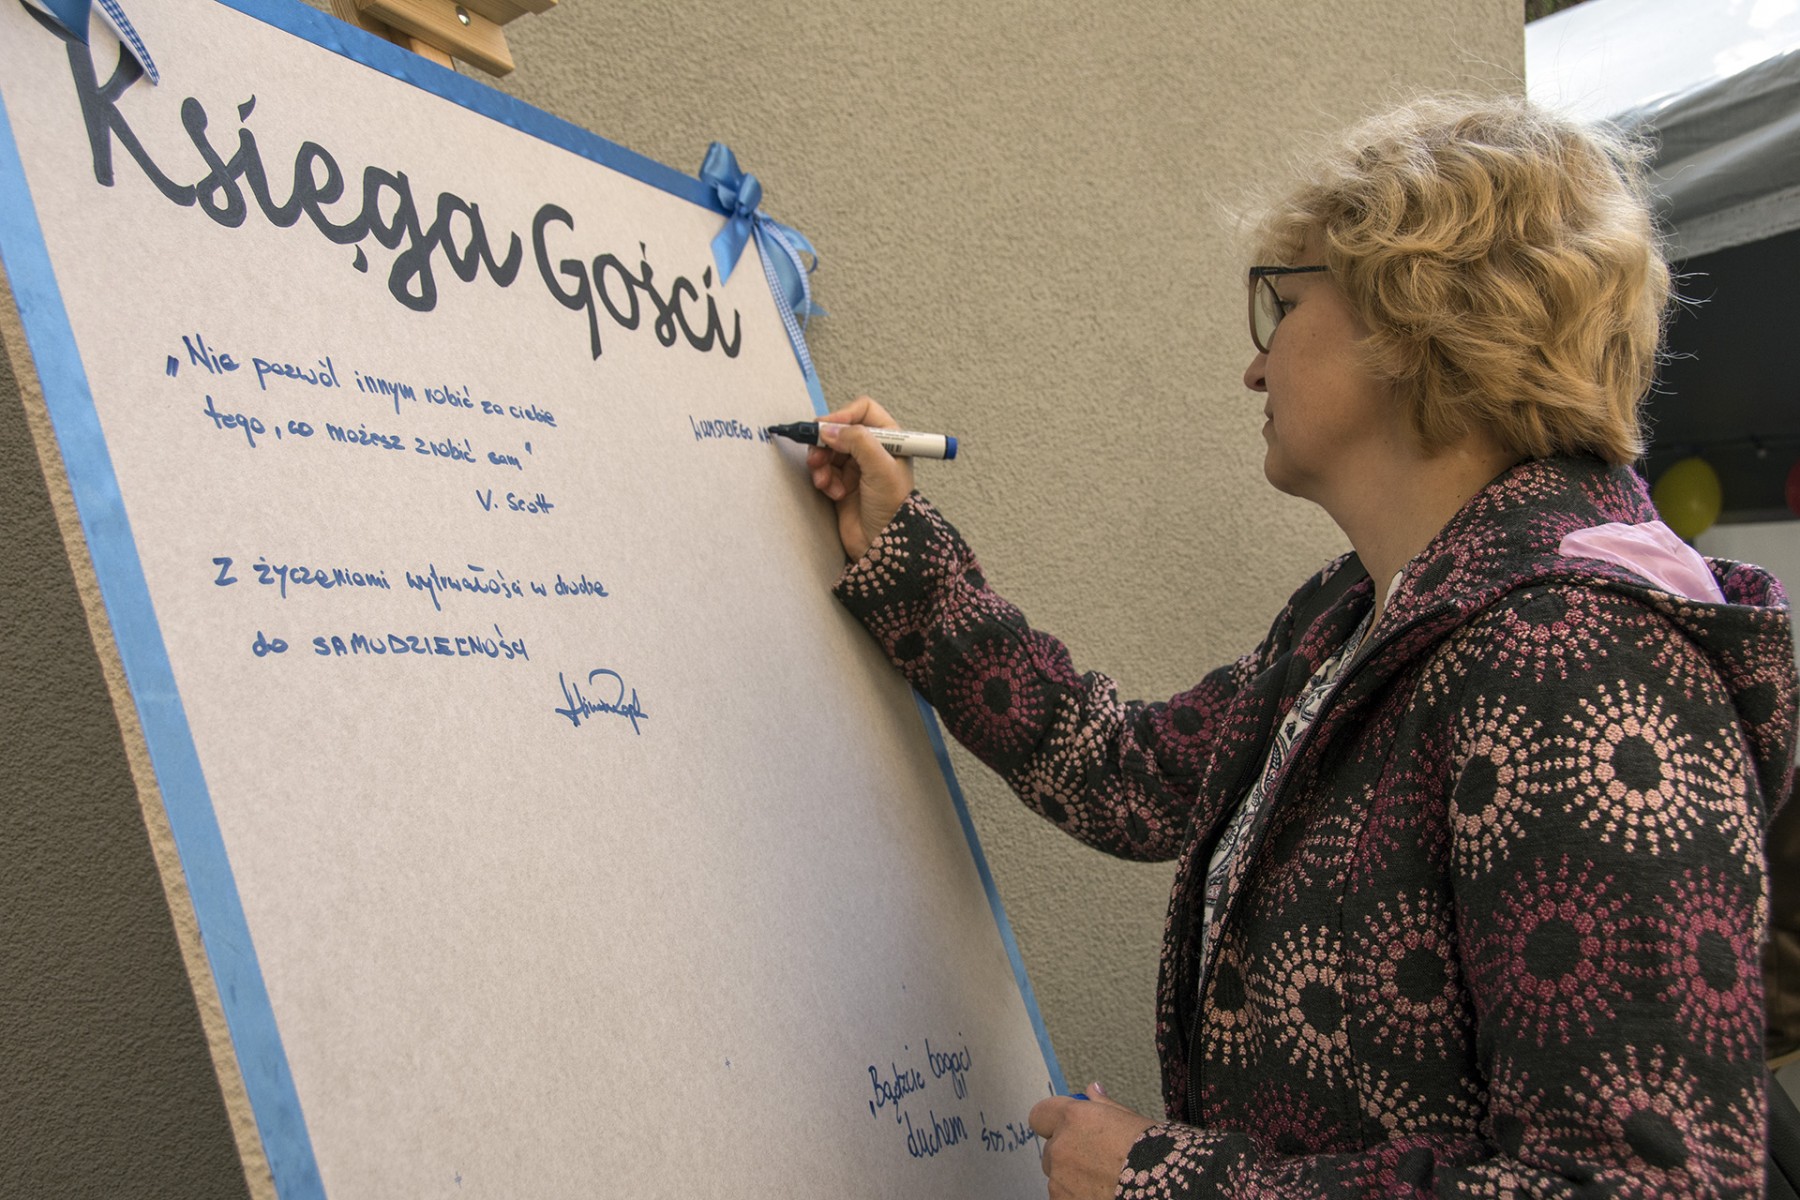 Księga Gości
„Nie pozwól innym robić za ciebie
tego, co możesz zrobić sam"
V. Scott
Z życzeniami wytrwałości w drodze
do SAMODZIELNOŚCI
WSZYSTKIEGO NA
„Bądźcie bogaci
duchem"
ŚDS